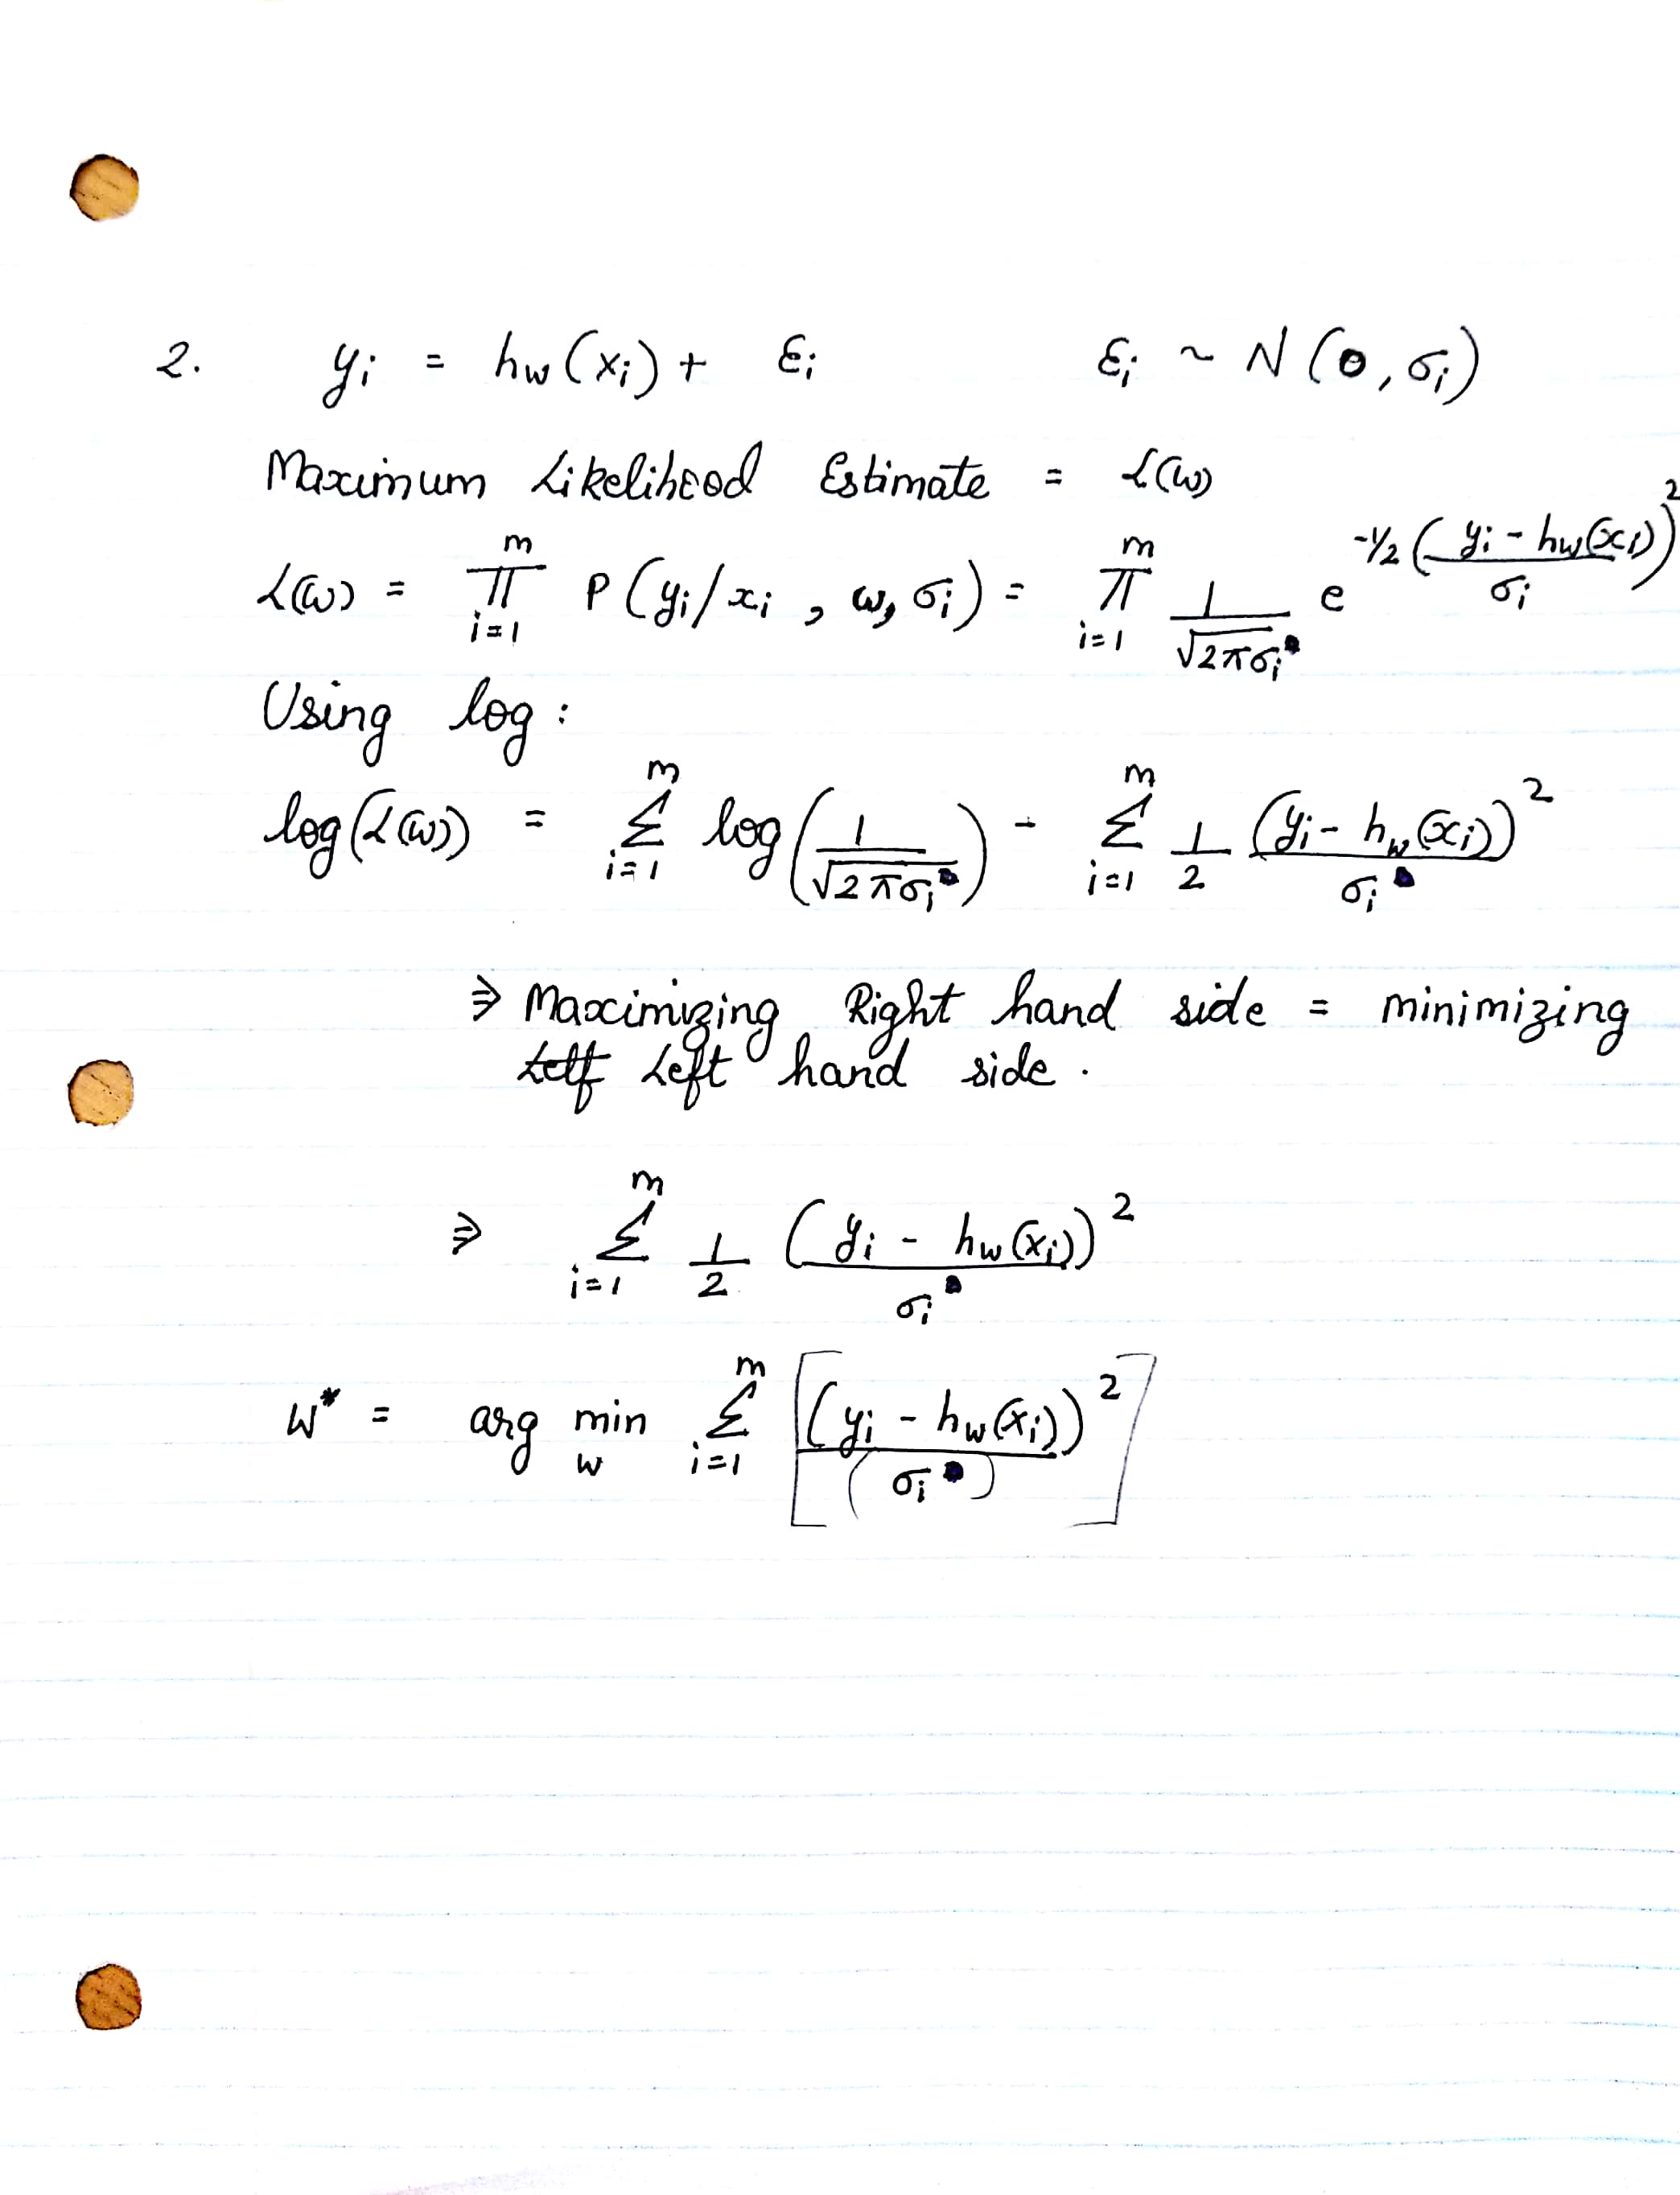 2. yᵢ = h_w(xᵢ) + εᵢ    εᵢ ~ N(0, σᵢ)
Maximum Likelihood Estimate = L(w)
L(w) = ∏_{i=1}^{m} P(yᵢ/xᵢ, w, σᵢ) = ∏_{i=1}^{m} 1/√(2πσᵢ) e^{-1/2 ((yᵢ - h_w(xᵢ))/σᵢ)²}
Using log:
log(L(w)) = Σ_{i=1}^{m} log(1/√(2πσᵢ)) - Σ_{i=1}^{m} 1/2 (yᵢ - h_w(xᵢ))²/σᵢ
⇒ Maximizing Right hand side = minimizing
Left hand side.
⇒ Σ_{i=1}^{m} 1/2 (yᵢ - h_w(xᵢ))²/σᵢ
w* = arg min_w Σ_{i=1}^{m} [(yᵢ - h_w(xᵢ))²/(σᵢ)]